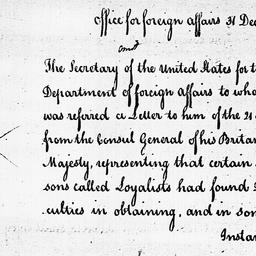 Office for foreign Affairs 31 Dec
The Secretary of the United States for t
Department of foreign affairs to who
was referred a Letter to him of the 21
from the Consul General of his Britan
Majesty, representing that certain
sons called Loyalists had found
culties in obtaining, and in som
Instan